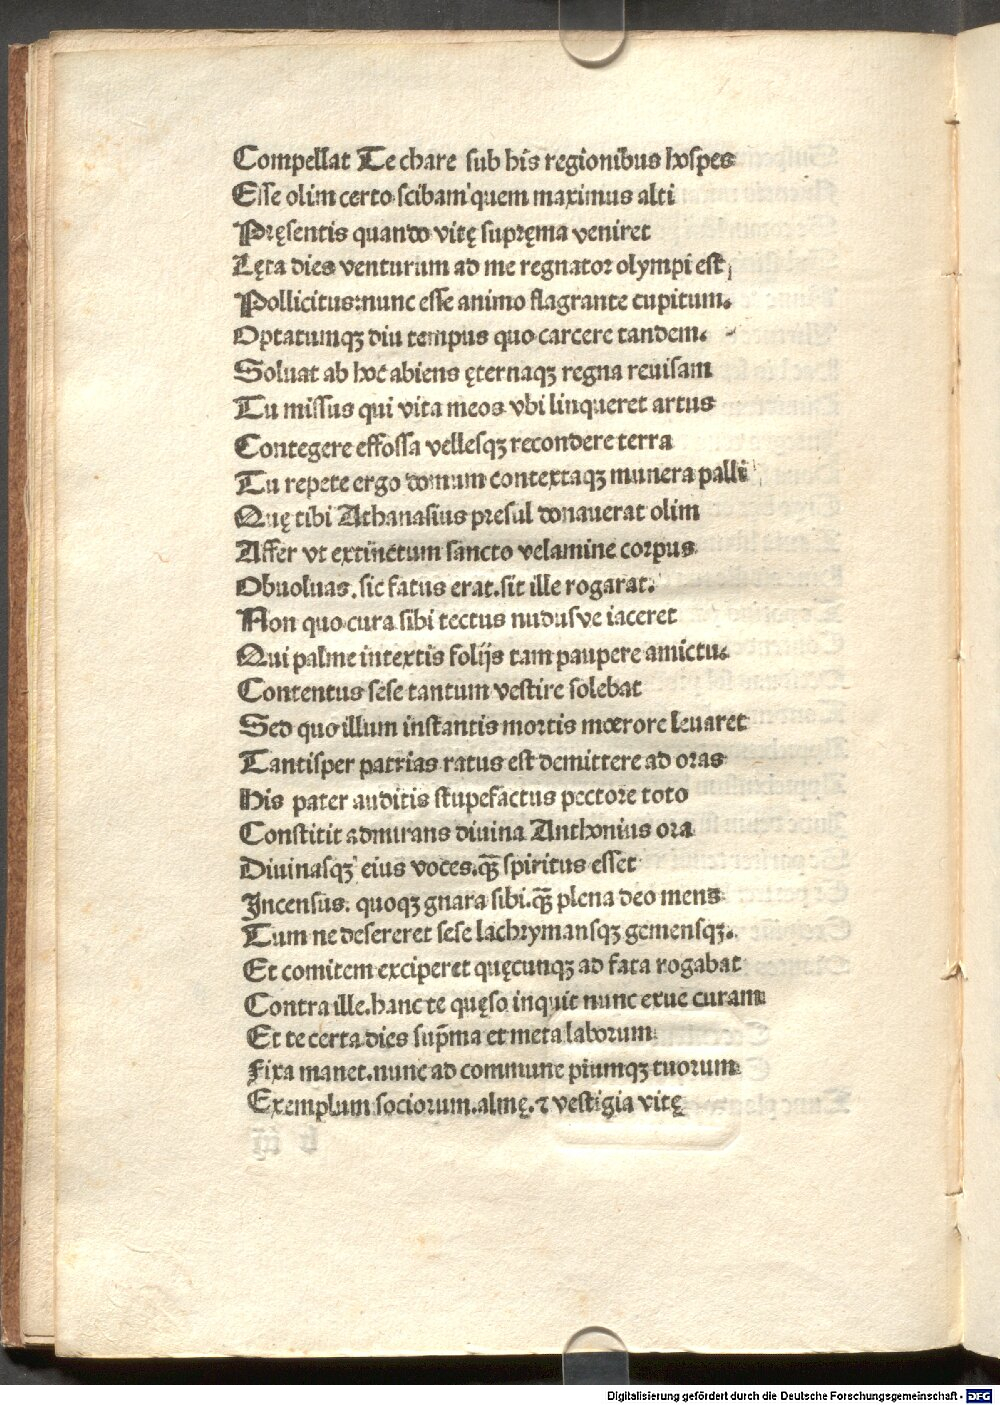 Compellat Te chare sub his regionibus hospes
Esse olim certo scibam quem maximus alti
Pręsentis quando vitę supręma veniret
Lęta dies venturum ad me regnator olympi est
Pollicitus:nunc esse animo flagrante cupitum.
Optatumqꝫ diu tempus quo carcere tandem.
Soluat ab hoc abiens ęternaqꝫ regna reuisam
Tu missus qui vita meos vbi linqueret artus
Contegere effossa vellesqꝫ recondere terra
Tu repete ergo domum contextaqꝫ munera palli
Quę tibi Athanasius presul donauerat olim
Affer vt extinctum sancto velamine corpus
Obuoluas.sic fatus erat.sit ille rogarat.
Non quo cura sibi tectus nudusve iaceret
Qui palme intextis folijs tam paupere amictu.
Contentus sese tantum vestire solebat
Sed quo illum instantis mortis mœrore leuaret
Tantisper patrias ratus est demittere ad oras
His pater auditis stupefactus pectore toto
Constitit admirans diuina Anthonius ora
Diuinasqꝫ eius voces.qꝫ̄ spiritus esset
Incensus. quoqꝫ gnara sibi.qꝫ̄ plena deo mens
Tum ne desereret sese lachrymansqꝫ gemensqꝫ.
Et comitem exciperet quęcunqꝫ ad fata rogabat
Contra ille.hanc te quęso inquit nunc exue curam
Et te certa dies sup̄ma et meta laborum
Fixa manet.nunc ad commune piumqꝫ tuorum
Exemplum sociorum.almę.⁊ vestigia vitę
Digitalisierung gefördert durch die Deutsche Forschungsgemeinschaft - DFG